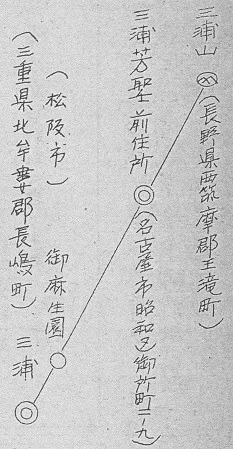 三浦山
(長野県西筑摩郡王滝町)
三浦芳聖前住所
(名古屋市昭和区御所町二ノ九)
御麻生園
(松阪市)
三浦
(三重県北牟婁郡長嶋町)